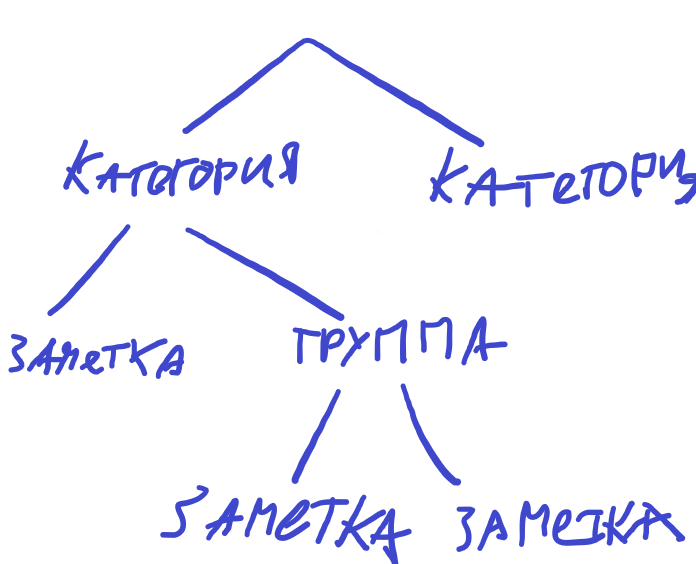 Категория
Категория
Заметка
группа
Заметка
Заметка